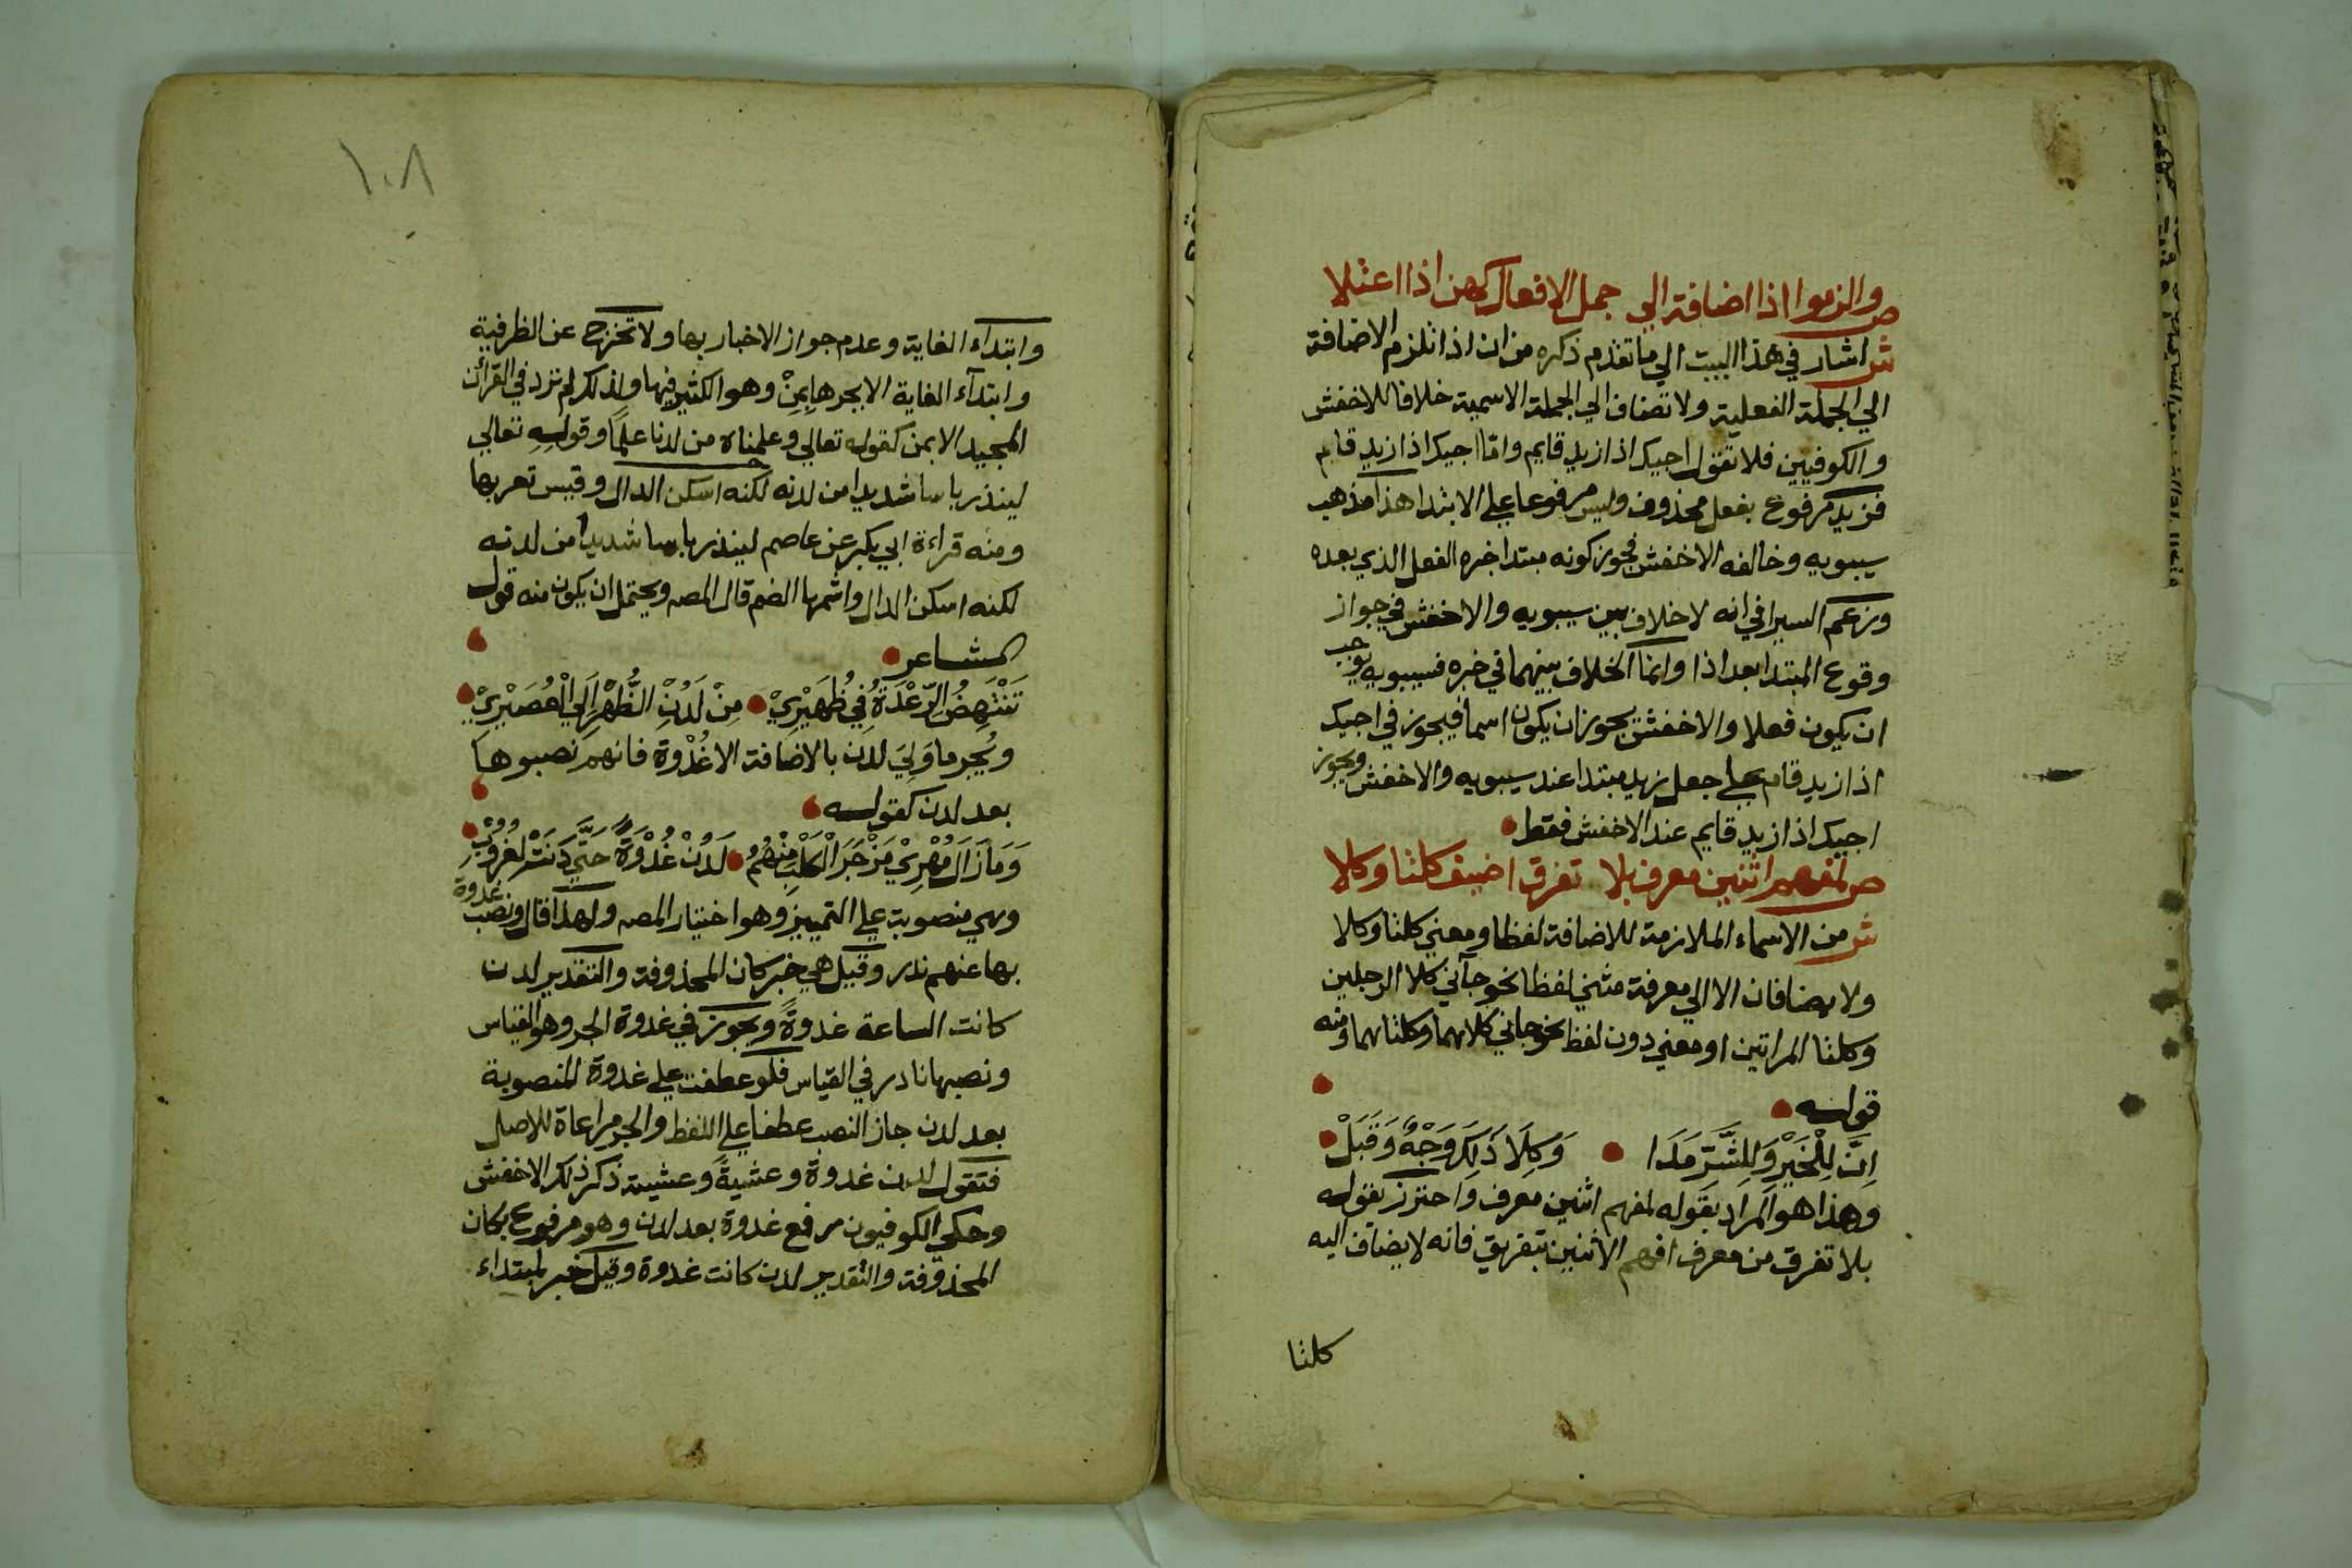 ص والزموا اذا اضافة الي جمل الافعال كهن اذا اعتلا
ش اشار في هذا البيت الي ما تقدم ذكره من ان اذا تلزم الاضافة
الي الجملة الفعلية ولا تضاف الي الجملة الاسمية خلافا للاخفش
والكوفيين فلا تقول اجيك اذا زيد قايم واما اجيك اذا زيد قام
فزيد مرفوع بفعل محذوف وليس مرفوعا علي الابتدا هذا مذهب
سيبويه وخالفه الاخفش فجوز كونه مبتدا خبره الفعل الذي بعده
وزعم السيرافي انه لا خلاف بين سيبويه والاخفش في جواز
وقوع المبتدا بعد اذا وانما الخلاف بينهما في خبره فسيبويه يوجب
ان يكون فعلا والاخفش يجوز ان يكون اسما فيجوز في اجيك
اذا زيد قام علي جعل زيد مبتدا عند سيبويه والاخفش ويجوز
اجيك اذا زيد قايم عند الاخفش فقط
ص لمفهم اثنين معرف بلا تفرق اضيف كلتا وكلا
ش من الاسماء الملازمة للاضافة لفظا ومعني كلتا وكلا
ولا يضافان الا الي معرفة مثني لفظا نحو جآني كلا الرجلين
وكلتا المراتين او معني دون لفظ نحو جاني كلاهما وكلتاهما ومنه
قوله
اِنَّ لِلْخَيْرِ وَلِلشَّرِّ مَدَا وَكِلَا ذَلِكَ وَجْهٌ وَقَبَلْ
وهذا هو المراد بقوله لمفهم اثنين معرف واحترز بقوله
بلا تفرق من معرف افهم الاثنين بتفريق فانه لا يضاف اليه
كلتا
١٠٨
وابتداء الغاية وعدم جواز الاخبار بها ولا تخرج عن الظرفية
وابتدآء الغاية الا بجرها بِمِنْ وهو الكثير فيها ولذلك لم ترد في القرآن
المجيد الا بمن كقوله تعالي وعلمناه من لدنا علمًا وقوله تعالي
لينذر باسا شديدا من لدنه لكنه اسكن الدال وقيس تعربها
ومنه قراءة ابي بكر عن عاصم لينذر باسا شديدا من لدنه
لكنه اسكن الدال واشمها الضم قال المصـ ويحتمل ان يكون منه قول
الشاعر
تَنْتَهِضُ الرِّعْدَةُ فِي ظُهَيْرِيْ مِنْ لَدُنِ الظُّهْرِ اِلَي الْعُصَيْرِيْ
ويُجر ما وَلِيَ لدن بالاضافة الا غُدْوة فانهم نصبوها
بعد لدن كقوله
وَمَا زَالَ مُهْرِيْ مَزْجَرَ الْكَلْبِ مِنْهُمُ لَدُنْ غُدْوَةً حَتَّي دَنَتْ لِغُرُوْبِ
وهي منصوبة علي التمييز وهو اختيار المصـ ولهذا قال ونصب غدوة
بها عنهم ندر وقيل هي خبر كان المحذوفة والتقدير لدن
كانت الساعة غدوةً ويجوز في غدوة الجر وهو القياس
ونصبها نادر في القياس فلو عطفت علي غدوة المنصوبة
بعد لدن جاز النصب عطفا علي اللفظ والجر مراعاة للاصل
فتقول لدن غدوة وعشيةً وعشية ذكر ذلك الاخفش
وحكي الكوفيون رفع غدوة بعد لدن وهو مرفوع بكان
المحذوفة والتقدير لدن كانت غدوة وقيل خبر لمبتداء